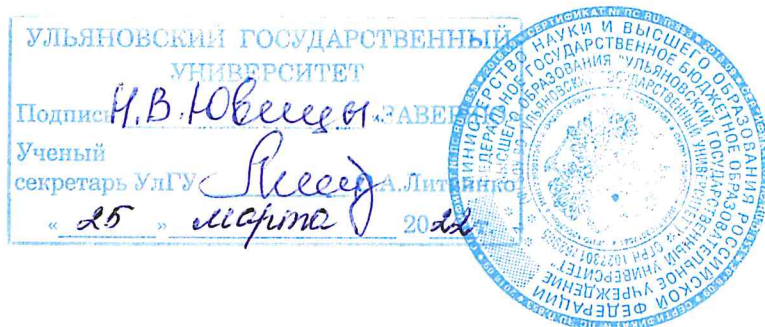 УЛЬЯНОВСКИЙ ГОСУДАРСТВЕННЫЙ
УНИВЕРСИТЕТ
Подпись Н.В. ЗАВЕРЯЮ
Ученый
секретарь УлГУ О.А.Литвинко
« 25 » марта 2022 г.
МИНИСТЕРСТВО НАУКИ И ВЫСШЕГО ОБРАЗОВАНИЯ РОССИЙСКОЙ ФЕДЕРАЦИИ
ФЕДЕРАЛЬНОЕ ГОСУДАРСТВЕННОЕ БЮДЖЕТНОЕ ОБРАЗОВАТЕЛЬНОЕ УЧРЕЖДЕНИЕ
ВЫСШЕГО ОБРАЗОВАНИЯ "УЛЬЯНОВСКИЙ ГОСУДАРСТВЕННЫЙ УНИВЕРСИТЕТ"